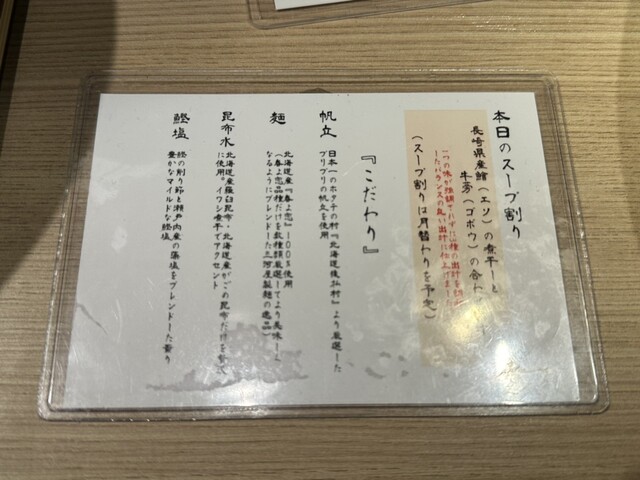 本日のスープ割り
長崎県産鱛（エソ）の煮干しと
牛蒡（ゴボウ）の合わ
一つの味が強調されずに二種の出汁を
したバランスの良い出汁に仕上げまし
（スープ割りは月替わりを予定）
『こだわり』
帆立
日本一のホタテの村『北海道猿払村』より厳選した
プリプリの帆立を使用
麺
北海道産『春よ恋』100%使用
（春よ恋品種だけを数種類厳選してより美味しく
なるようにブレンドした三河屋製麺の逸品）
昆布水
北海道産羅臼昆布・北海道産がごめ昆布だけを贅沢
に使用。イワシ煮干でアクセント
鰹塩
鰹の削り節と瀬戸内産の藻塩をブレンドした香り
豊かなマイルドな鰹塩